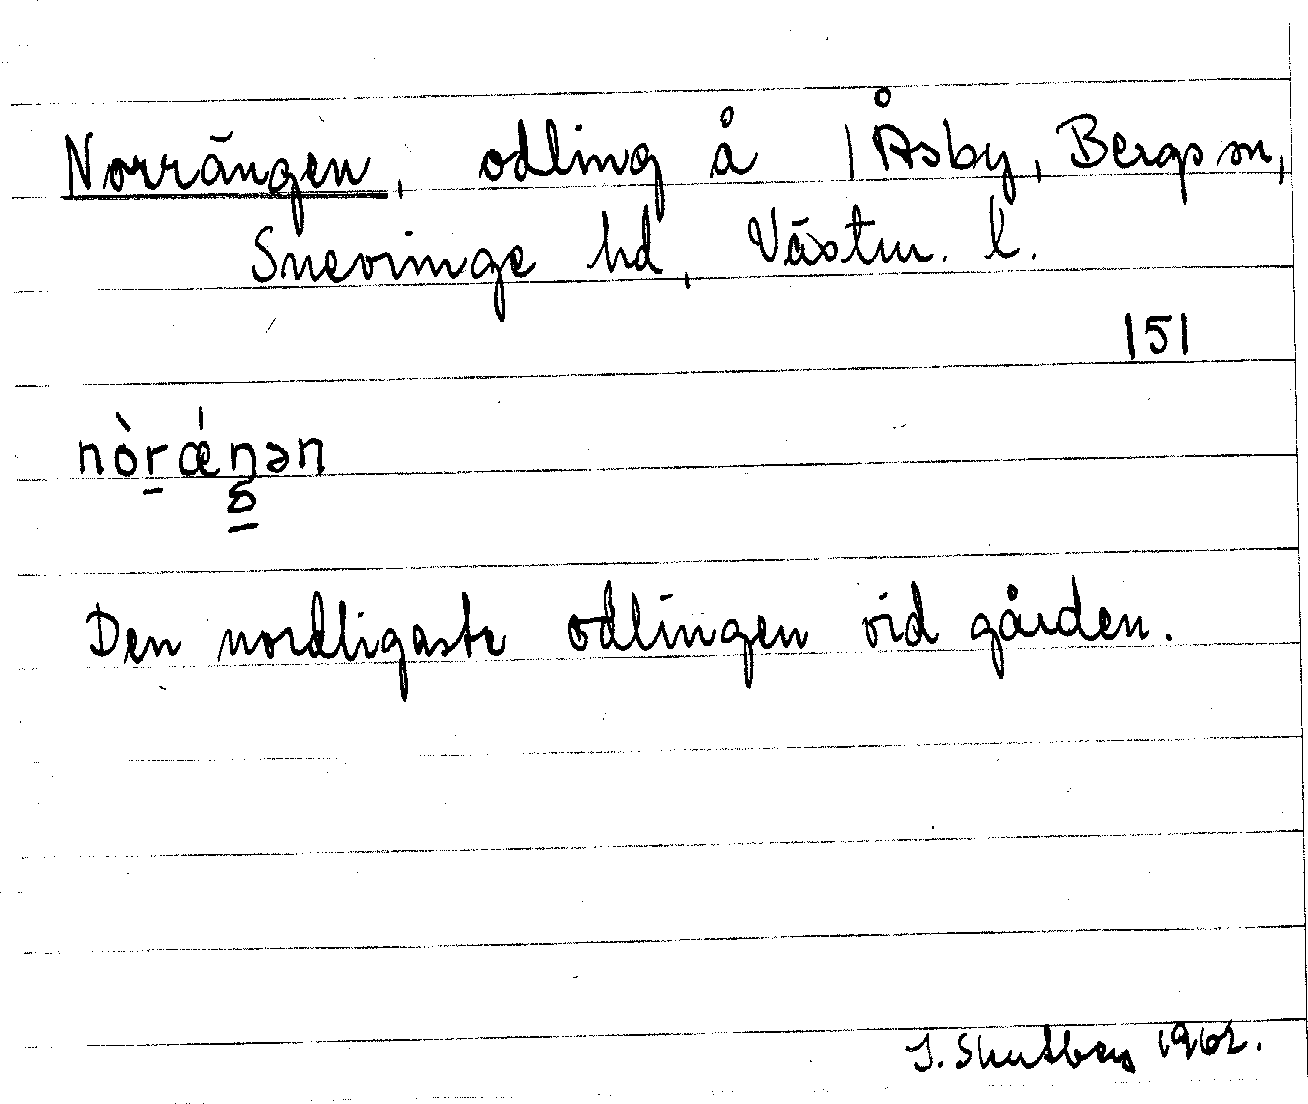 Norrängen, odling å 1 Åsby, Bergs sn,
Snevringe hd, Västm. l.
151
nòrǽŋən
Den nordligaste odlingen vid gården.
1962.